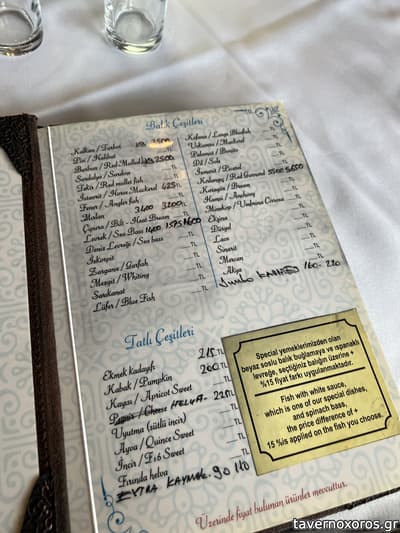 Balık Çeşitleri
Kalkan / Turbot 2500 TL
Pisi / Halibut
Barbun / Red Mullet 2500
Sardalya / Sardine TL
Tekir / Red mullet fish TL
İstavrit / Horse Mackerel 625 TL
Fener / Angler fish TL
Mercan 3400 3200 TL
Çipura / Bilt - Head Bream TL
Levrek / Sea Bass 1400 1595 1600
Deniz Levreği / Sea bass TL
İskorpit TL
Zargana / Garfish TL
Mezgit / Whiting TL
Sarıkanat TL
Lüfer / Blue Fish TL
Kofana / Large Bluefish TL
Uskumru / Mackerel TL
Palamut / Bonito TL
Dil / Sole TL
İsmarit / Pickarel TL
Kırlangıç / Red Gurnard 5500 5000
Karagöz / Bream TL
Hamsi / Anchovy TL
Minekop / Umbrina Cirrosa TL
Eşkina TL
Dülger TL
Lüce TL
Sinarit TL
Mercan TL
Akya TL
Jumbo KARİDES 160. 220
Tatlı Çeşitleri
Ekmek kadayıfı 215 TL
Kabak / Pumpkin 200 TL
Kayısı / Apricot Sweet TL
HELVA. 220 TL
Uyutma (sütlü incir) TL
Ayva / Quince Sweet TL
İncir / Fig Sweet TL
Fırında helva TL
EXTRA KAYMAK. 90 110
Special yemeklerimizden olan
beyaz soslu balık buğlamaya ve ıspanaklı
levreğe, seçtiğiniz balığın üzerine +
%15 fiyat farkı uygulanmaktadır.
Fish with white sauce,
which is one of our special dishes,
and spinach bass,
the price difference of +
15 %is applied on the fish you choose.
Üzerinde fiyat bulunan ürünler mevcuttur.
tavernoxoros.gr